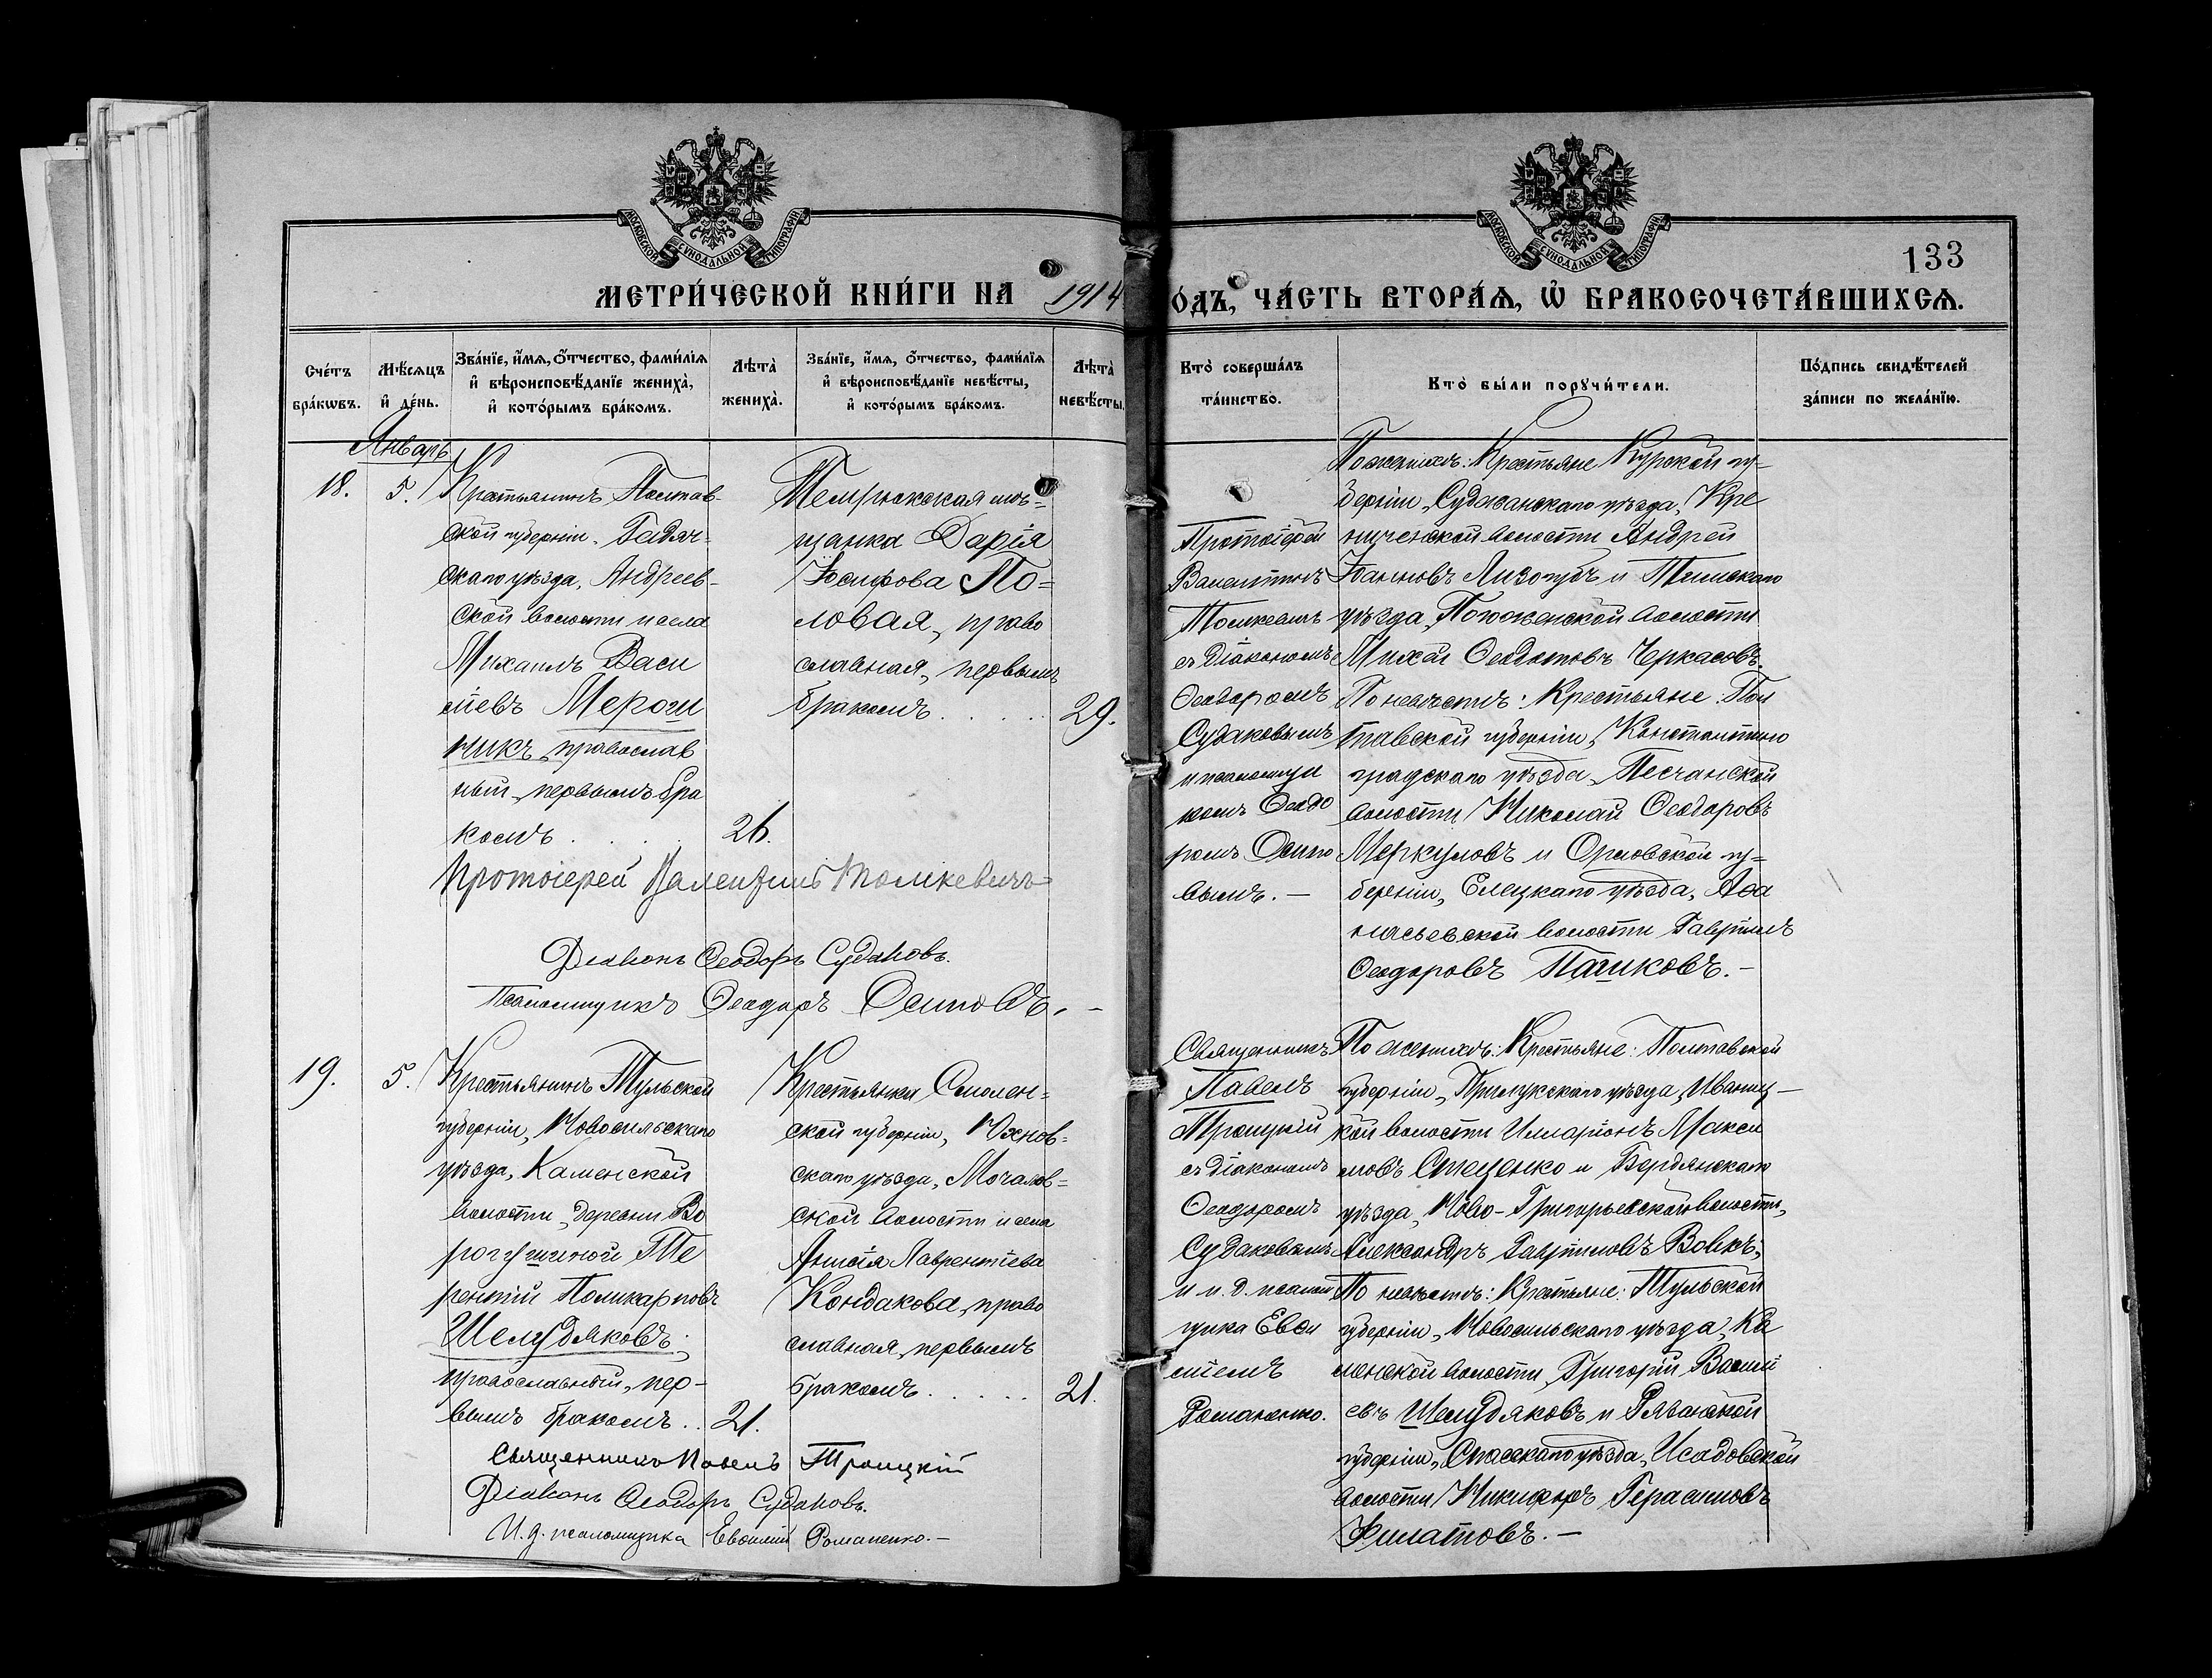 МОСКОВСКОЙ СѴНОДАЛЬНОЙ ТИПОГРАФІИ
МОСКОВСКОЙ СѴНОДАЛЬНОЙ ТИПОГРАФІИ
133
МЕТРИ́ЧЕСКОЙ КНИ́ГИ НА 1914
О́ДЪ, ЧА́СТЬ ВТОРА́Ѧ, Ѽ БРАКОСОЧЕТА́ВШИХСѦ.
Сче́тъ
бра́кѡвъ.
Мѣ́сѧцъ
и҆ де́нь.
Зва́нїе, и҆́мѧ, ѻ҆́тчество, фами́лїѧ
и҆ вѣроисповѣ́данїе жениха̀,
и҆ кото́рымъ бра́комъ.
Лѣта̀
жениха̀.
Зва́нїе, и҆́мѧ, ѻ҆́тчество, фами́лїѧ
и҆ вѣроисповѣ́данїе невѣ́сты,
и҆ кото́рымъ бра́комъ.
Лѣта̀
невѣ́сты.
Кто̀ соверша́лъ
та́инство.
Кто̀ бы́ли порꙋчи́тели.
По́дпись свидѣ́телей
за́писи по жела́нїю.
Январь
18.
5.
Крестьянинъ Полтав-
ской губерніи, Гадяч-
скаго уѣзда, Андреев-
ской волости и села
Михаилъ Васи
ліевъ Мерош
никъ, православ
ный, первымъ бра
комъ . . . .
26.
Темрюкская мѣ-
щанка Дарія
Іосифова По-
ловая, право
славная, первымъ
бракомъ . . . .
29.
Протоіерей
Валентинъ
Томкевичъ
съ діакономъ
Ѳеодоромъ
Судаковымъ
и псаломщи
комъ Ѳеодо
ромъ Осипо
вымъ. —
По женихѣ: Крестьяне Курской гу-
берніи, Суджанскаго уѣзда, Кре
ничевской волости Андрей
Іоанновъ Лизогубъ и Тимскаго
уѣзда, волости
Михаил Ѳеодотовъ Черкасовъ.
По невѣстѣ: Крестьяне: Пол
тавской губерніи, Константино
градскаго уѣзда, Песчанской
волости Николай Ѳеодоровъ
Меркуловъ и Орловской гу-
берніи, Елецкаго уѣзда, Аѳа
насьевской волости Гавріилъ
Ѳеодоровъ Пашковъ. —
Протоіерей Валентинъ Томкевичъ
Діаконъ Ѳеодоръ Судаковъ.
Псаломщикъ Ѳеодоръ Осиповъ. —
19.
5.
Крестьянинъ Тульской
губерніи, Новосильскаго
уѣзда, Каменской
волости, деревни Во
рогушиной Те
рентій Поликарповъ
Шелудяковъ,
православный, пер-
вымъ бракомъ . .
21.
Крестьянка Смолен-
ской губерніи, Юхнов-
скаго уѣзда, Мочалов-
ской волости и села
Анисія Лаврентіева
Кондакова, право
славная, первымъ
бракомъ . . . . .
21.
Священникъ
Павелъ
Троицкій
съ діакономъ
Ѳеодоромъ
Судаковымъ
и и. д. псалом
щика Евѳи
міемъ
Романенко.
По женихѣ: Крестьяне: Полтавской
губерніи, Прилукскаго уѣзда, Иваниц-
кой волости Илларіонъ Макси
мовъ Стеценко и Бердянскаго
уѣзда, Ново-Григорьевской волости,
Александръ Гавріиловъ Вовкъ;
По невѣстѣ: Крестьяне: Тульской
губерніи, Новосильскаго уѣзда, Ка
менской волости, Григорій Василі
евъ Шелудяковъ и Рязанской
губерніи, Спасскаго уѣзда, Исадовской
волости Никифоръ Герасимовъ
Филатовъ. —
Священникъ Павелъ Троицкій
Діаконъ Ѳеодоръ Судаковъ.
И. д. псаломщика Евѳимій Романенко. —